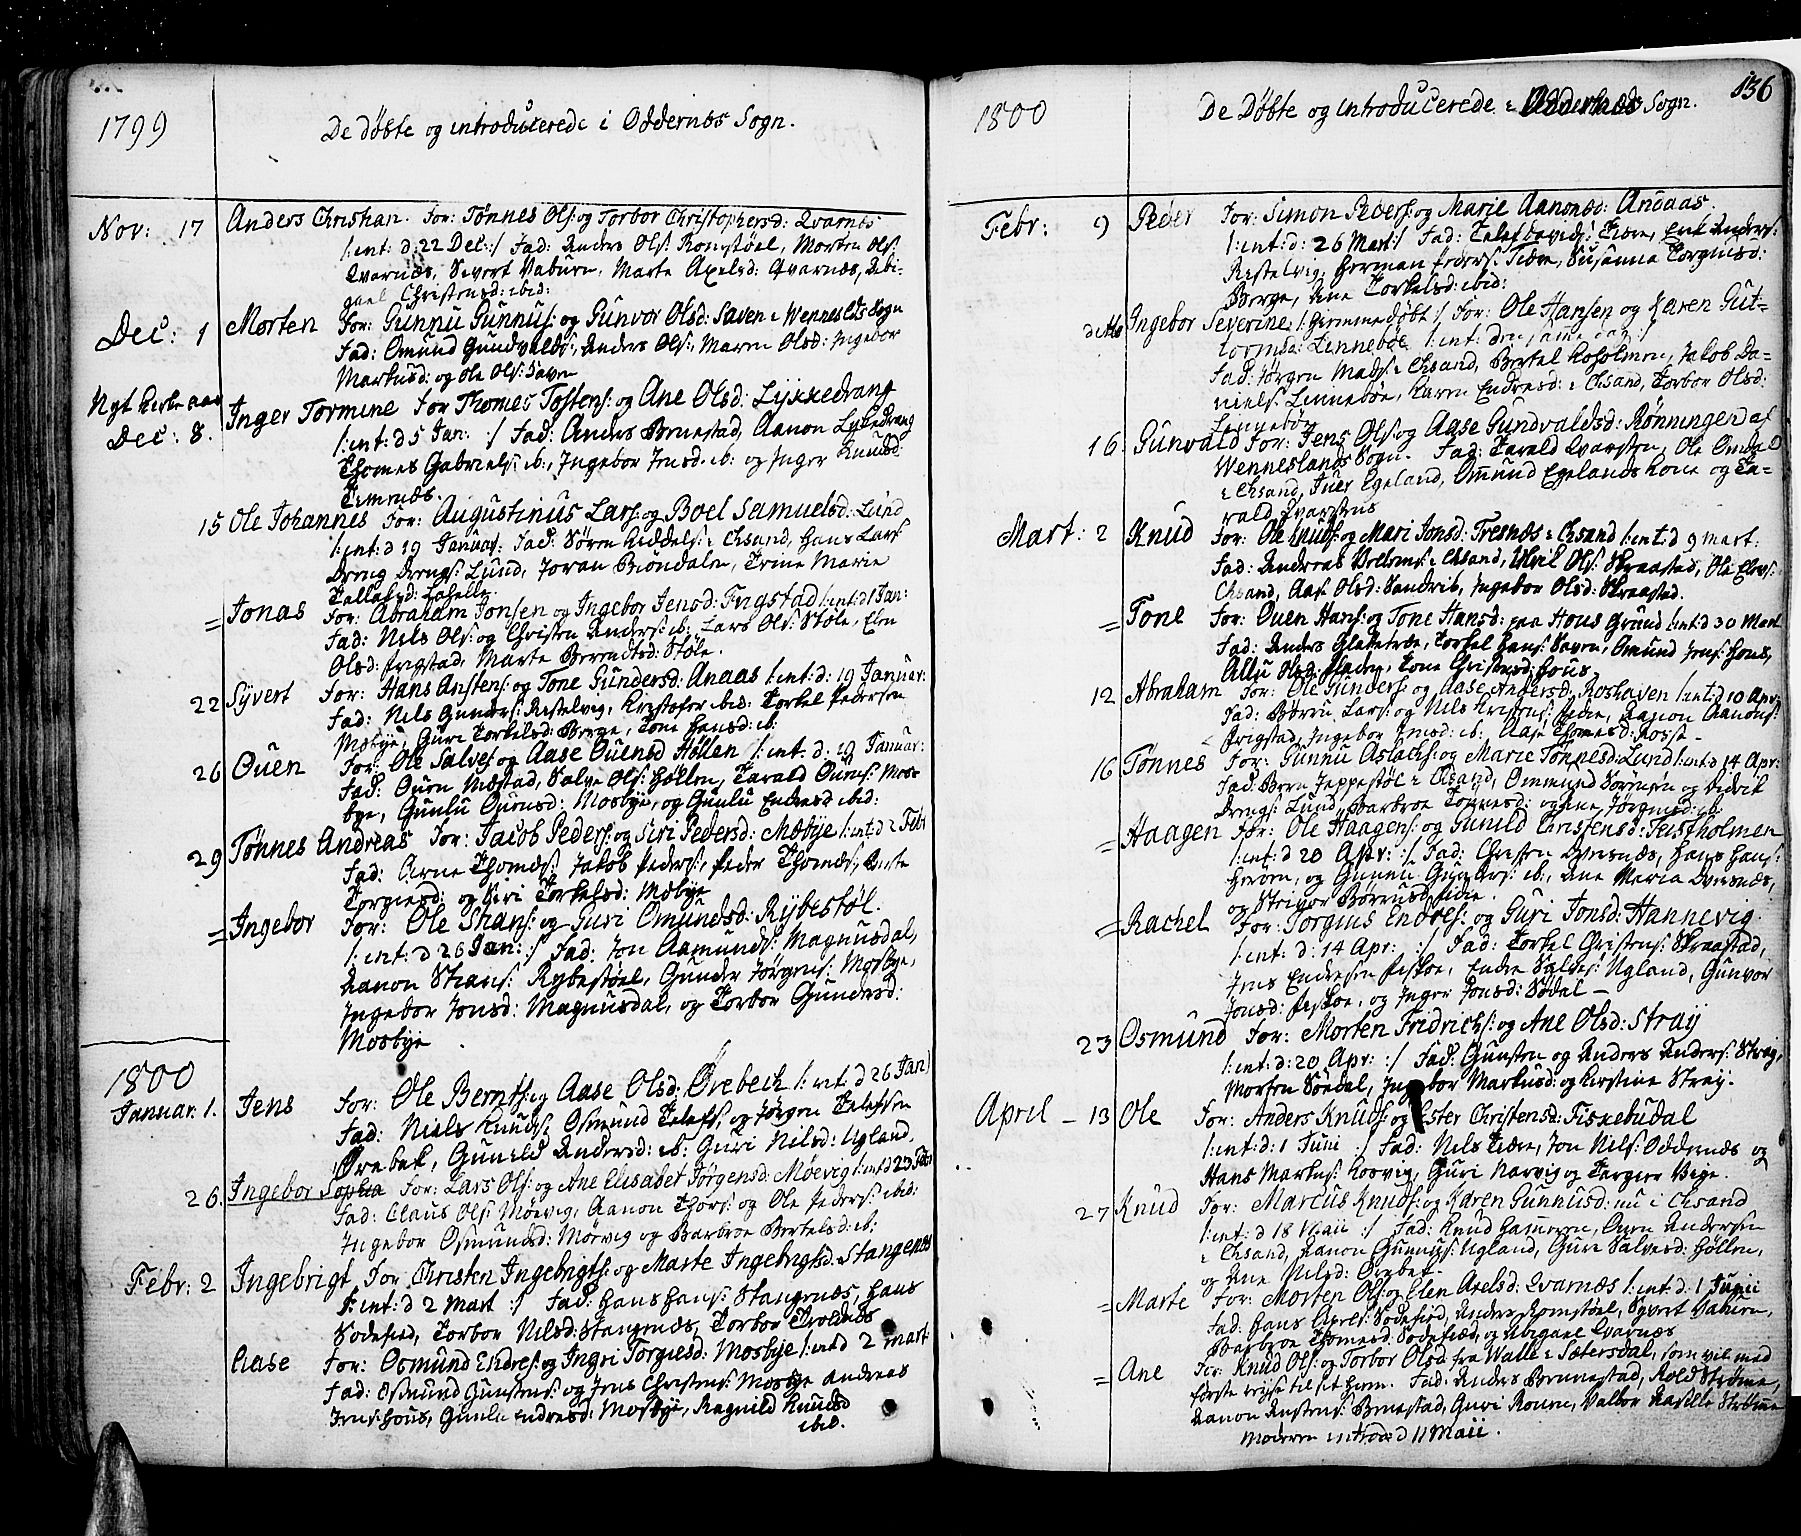 1799
De döbte og introducerede i Oddernæs Sogn.
Nov: 17 Anders Christian. For: Tønnes Ols: og Torbor Christophersd: Qvarnæs
/:int: d: 22 Dec:/ Fad: Anders Ols: Romstøel, Morten Ols:
Qvarnæs, Severt Vaburn, Marte Axelsd: Qvarnæs, Abi-
gael Christensd: ibid:
Dec: 1 Morten For: Gunnu Gunnus: og Gunvor Olsd: Saven i Wenneslds Sogn
Fad: Omund Gundvalds:, Anders Ols:, Maren Olsd: Ingebor
Markusd: og Ole Ols: Saven
Nyt Kirke aar
Dec: 8. Inger Tormine For Thomes Tostens: og Ane Olsd: Lykkedrang
/:int: d 5 Jan: :/ Fad: Anders Bruestad, Aanon Lykedrang
Thomes Gabriels: ib:, Ingebor Jensd: ib: og Inger Knudsd:
Timenæs.
15 Ole Johannes For: Augustinus Lars: og Boel Samuelsd: Lund
/:int: d 19 Januar: Fad: Søren Kiddels: i Chsand, Hans Lars:
Dreng Drengs: Lund, Joran Biöndalen, Trine Marie
= Jonas For: Abraham Jonsen og Ingebor Jensd: Frigstad /:int: d 1 Jan:
Fad: Nils Ols: og Christen Anders: ib:, Lars Ols: Støle, Elen
Olsd: Frigstad, Marte Berentsd: Støle.
22 Syvert For: Hans Anstens: og Tone Gundersd: Anaas /:int: d: 19 Januar:
Fad: Nils Gunders: Restelvig, Kristofer ibid: Torkel Pedersen
Mæbye, Guri Torkelsd: Berge, Tone Hansd: ib:
26 Ouen For: Ole Salves: og Aase Ouensd Høllen /:int: d: 19 Januar:
Fad: Ouen Mæstad, Salve Ols: Høllen, Tarald Ouens: Mos-
bye, Gunlu Ouensd: Mosbye, og Gunlu Endresd ibid:
29 Tønnes Andreas For: Jacob Peders: og Siri Pedersd: Mæbye /:int: d 2 Febr
Fad: Arne Thomes:, Jakob Peders:, Peder Thomes:, Anne
Torgiersd: og Siri Torkelsd: Mæbye
= Ingebor For: Ole Strans: og Guri Omundsd: Rybestøl.
/:int: d 26 Jan: :/ Fad: Jon Aamunds: Magnusdal,
Aanon Strans: Rybestøel, Gunder Jørgens: Mosbye,
Ingebor Jonsd: Magnusdal, og Torbor Gundersd:
Mosbye
1800
Januar: 1. Jens For: Ole Bernts: og Aase Olsd: Ørebeck /:int: d 26 Jan)
Fad: Niels Knuds: Osmund Telefs: og Jørgen Telefsen
Ørebek, Gunild Andersd: ib: Guri Nilsd: Ugland.
26. Ingebor Sophia For: Lars Ols: og Ane Elisabet Jørgensd: Møevig /:int d 23 Feb:
Fad: Claus Ols: Møevig, Aanon Thors: og Ole Peders: ibid:
Ingebor Osmundsd: Møevig og Barbroe Bertelsd: ib:
Febr: 2 Ingebrigt For Christen Ingebrigts: og Marte Ingebrigtsd: Stangenæs
/:int: d 2 Mart :/ Fad: Hans Hans: Stangenæs, Hans
Sodefied, Torbor Nilsd: Stangenæs, Torbor Trolenæs
Aase For: Osmund Endres: og Ingri Torgiesd: Mosbye /:int d 2 mart:
Fad: Osmund Gunstens: og Jens Christens: Mosbye Andreas
Jens: Hous, Gunlu Endresd: Mosbye, Ragnild Knudsd
ibid.
136
1800
De Döbte og introducerede i Oddernæs Sogn.
Febr: 9 Peder For: Simon Peders: og Marie Aanonsd: Andaas.
/:int: d: 26 Mart:/ Fad: Telef Davids: Thore, Erik Anders:
Restelvig, Herman Peders: Tiøm, Susanna Torgiusd:
Berge, Ane Torkelsd: ibid:
ditto Ingebor Severine, /:hiemme döbt:/ For: Ole Hansen og Karen Gut-
tormsd: Lenneböe /:int: den samme dag:/
Fad: Jørgen Mads: i Chsand, Bertel Kosholmen, Jakob Da-
niels: Lenneböe, Karen Endresd: i Chsand, Torbor Olsd:
Lenneböe
16. Gunvald For: Jens Ols: og Aase Gundvaldsd: Rønningen af
Wenneslands Sogn. Fad: Tarald Qvarsten, Ole Omdal
i Chsand, Iver Egeland, Omund Egelands Kone og Ta-
rald Qvarstens
Mart: 2 Knud For: Ole Knuds: og Mari Jonsd: Tresnæs i Chsand /:int: d 9 mart:
Fad: Andreas Vellems: i Chsand, Ols: Skraastad, Ole Elevs:
Chsand, Aase Olsd: Sandvik, Ingebor Olsd: Skraastad.
= Tone For: Ouen Hans: og Tone Hansd: paa Hous Grund /:int: d 30 Mart
Fad: Anders Gletetræ, Torkel Hans: Saven, Omund Jens: Hous,
Allu Olsd: Tone Christensd: Hous
12 Abraham For: Ole Gunders: og Aase Andersd: Roshaven /:int: d 10 Apr:
Fad: Børru Lars: og Nils Kristens: Fidie, Aanon Aanons:
Frigstad, Ingebor Jensd: ib:, Aase Thomesd: Rosse
16 Tønnes For: Gunnu Aslachs: og Marie Tønnesd: Lund /:int: d 14 Apr:
Fad Bern Jeppestøl i Chsand, Ommund Sörensen og Didrik
Drengs: Lund, Barbroe Tønnesd: og Ane Jørgensd: ib:
= Haagen For: Ole Haagens: og Gunild Christensd: Tustholmen
/:int: d 20 Apr: :/ Fad: Christen Dvesnæs, Hans Hans:
og Gunnu Gunders: ib:, Ane Maria Dvesnæs,
og Strigor Børrusd: Fidie.
= Rachel For: Torgius Endres: og Guri Jonsd: Hannevig
/:int: d: 14 Apr: :/ Fad: Torkel Christens: Skraastad,
Jens Endresen Fiskae, Endre Salves: Ugland, Gunvor
Jonsd: Fiskae, og Inger Jonsd: Sødal –
23 Osmund For: Morten Fridrichs: og Ane Olsd: Stray
/:int: d: 20 Apr: :/ Fad: Gunsten og Anders Anders: Stray,
Morten Söedal, Ingebor Markusd: og Kirstine Stray.
April – 13 Ole For: Anders Knuds: og Ester Christensd: Fiskebudal
/:int: d: 1 Juni :/ Fad: Nils Tiære, Jon Nils: Oddernæs og
Hans Markus: Kosvig, Guri Narvig og Targier Vige.
27 Knud For: Marcus Knuds: og Karen Gunnusd: nu i Chsand
/:int: d 18 Maii :/ Fad: Knud Hameren, Ouen Andersen
i Chsand, Aanon Gunnus: Ugland, Guri Salvesd: Høllen,
og Ane Nilsd: Ørebek.
= Marte For: Morten Ols: og Elen Axelsd: Qvarnæs /:int: d: 1 Junii
Fad: Hans Axels: Sodefied, Anders Romstøel, Syvert Vaburn,
Barbroe Thomesd: Sodefied, og Abigael Qvarnæs
= Ane For: Knud Ols: og Torbor Olsd fra Walle i Sætersdal, som vil med
første reyse til sit hiem. Fad: Anders Brunestad, Rold Strömme,
Aanon Anstens: Bruestad, Guri Rouen, Valbor Strömme
Moderen introd: d 11 Maii.